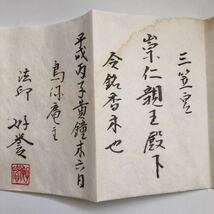 三笠宮
崇仁親王殿下
命銘香木也
平成丙子黄鐘末六日
庵主
法印 好誉